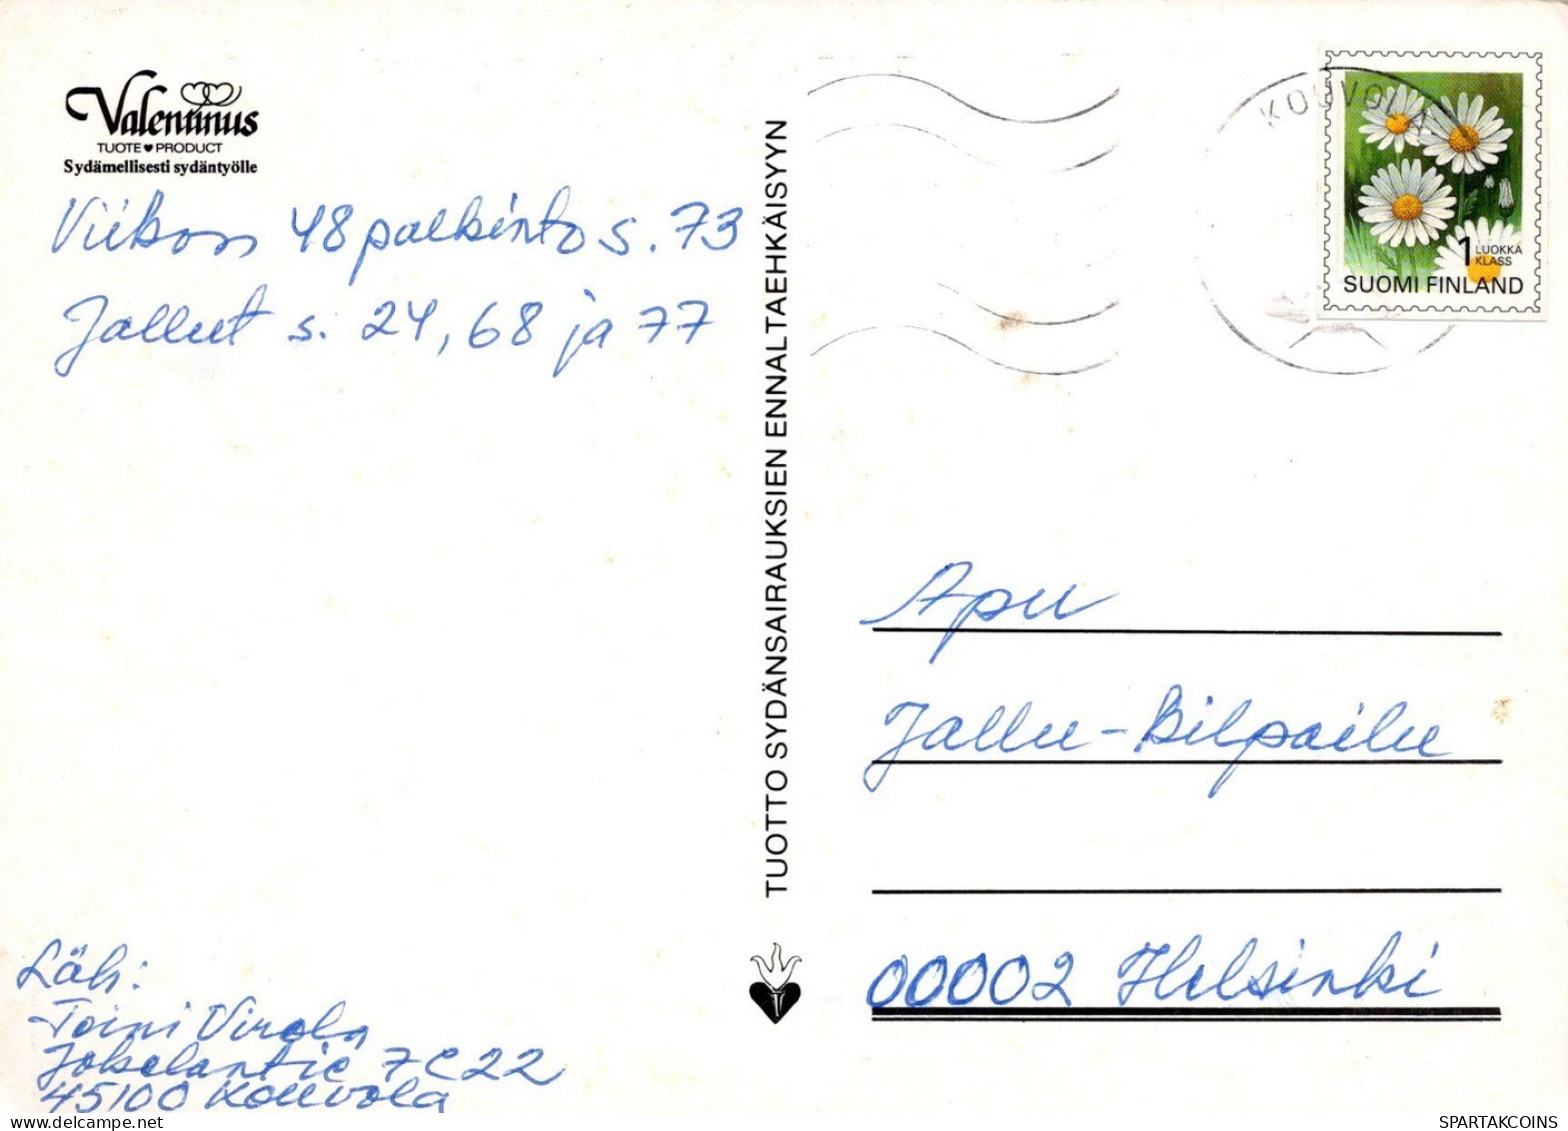 Valentinus
TUOTE ♥ PRODUCT
Sydämellisesti sydäntyölle
Viikon 48 palkinto s. 73
Jallut s. 24, 68 ja 77
Läh:
Toini Virola
Jokelantie 7 C 22
45100 Kouvola
TUOTTO SYDÄNSAIRAUKSIEN ENNALTAEHKÄISYYN
KOUVOLA
1 LUOKKA
KLASS
SUOMI FINLAND
Apu
Jallu-Kilpailu
00002 Helsinki
SPARTAKCOINS